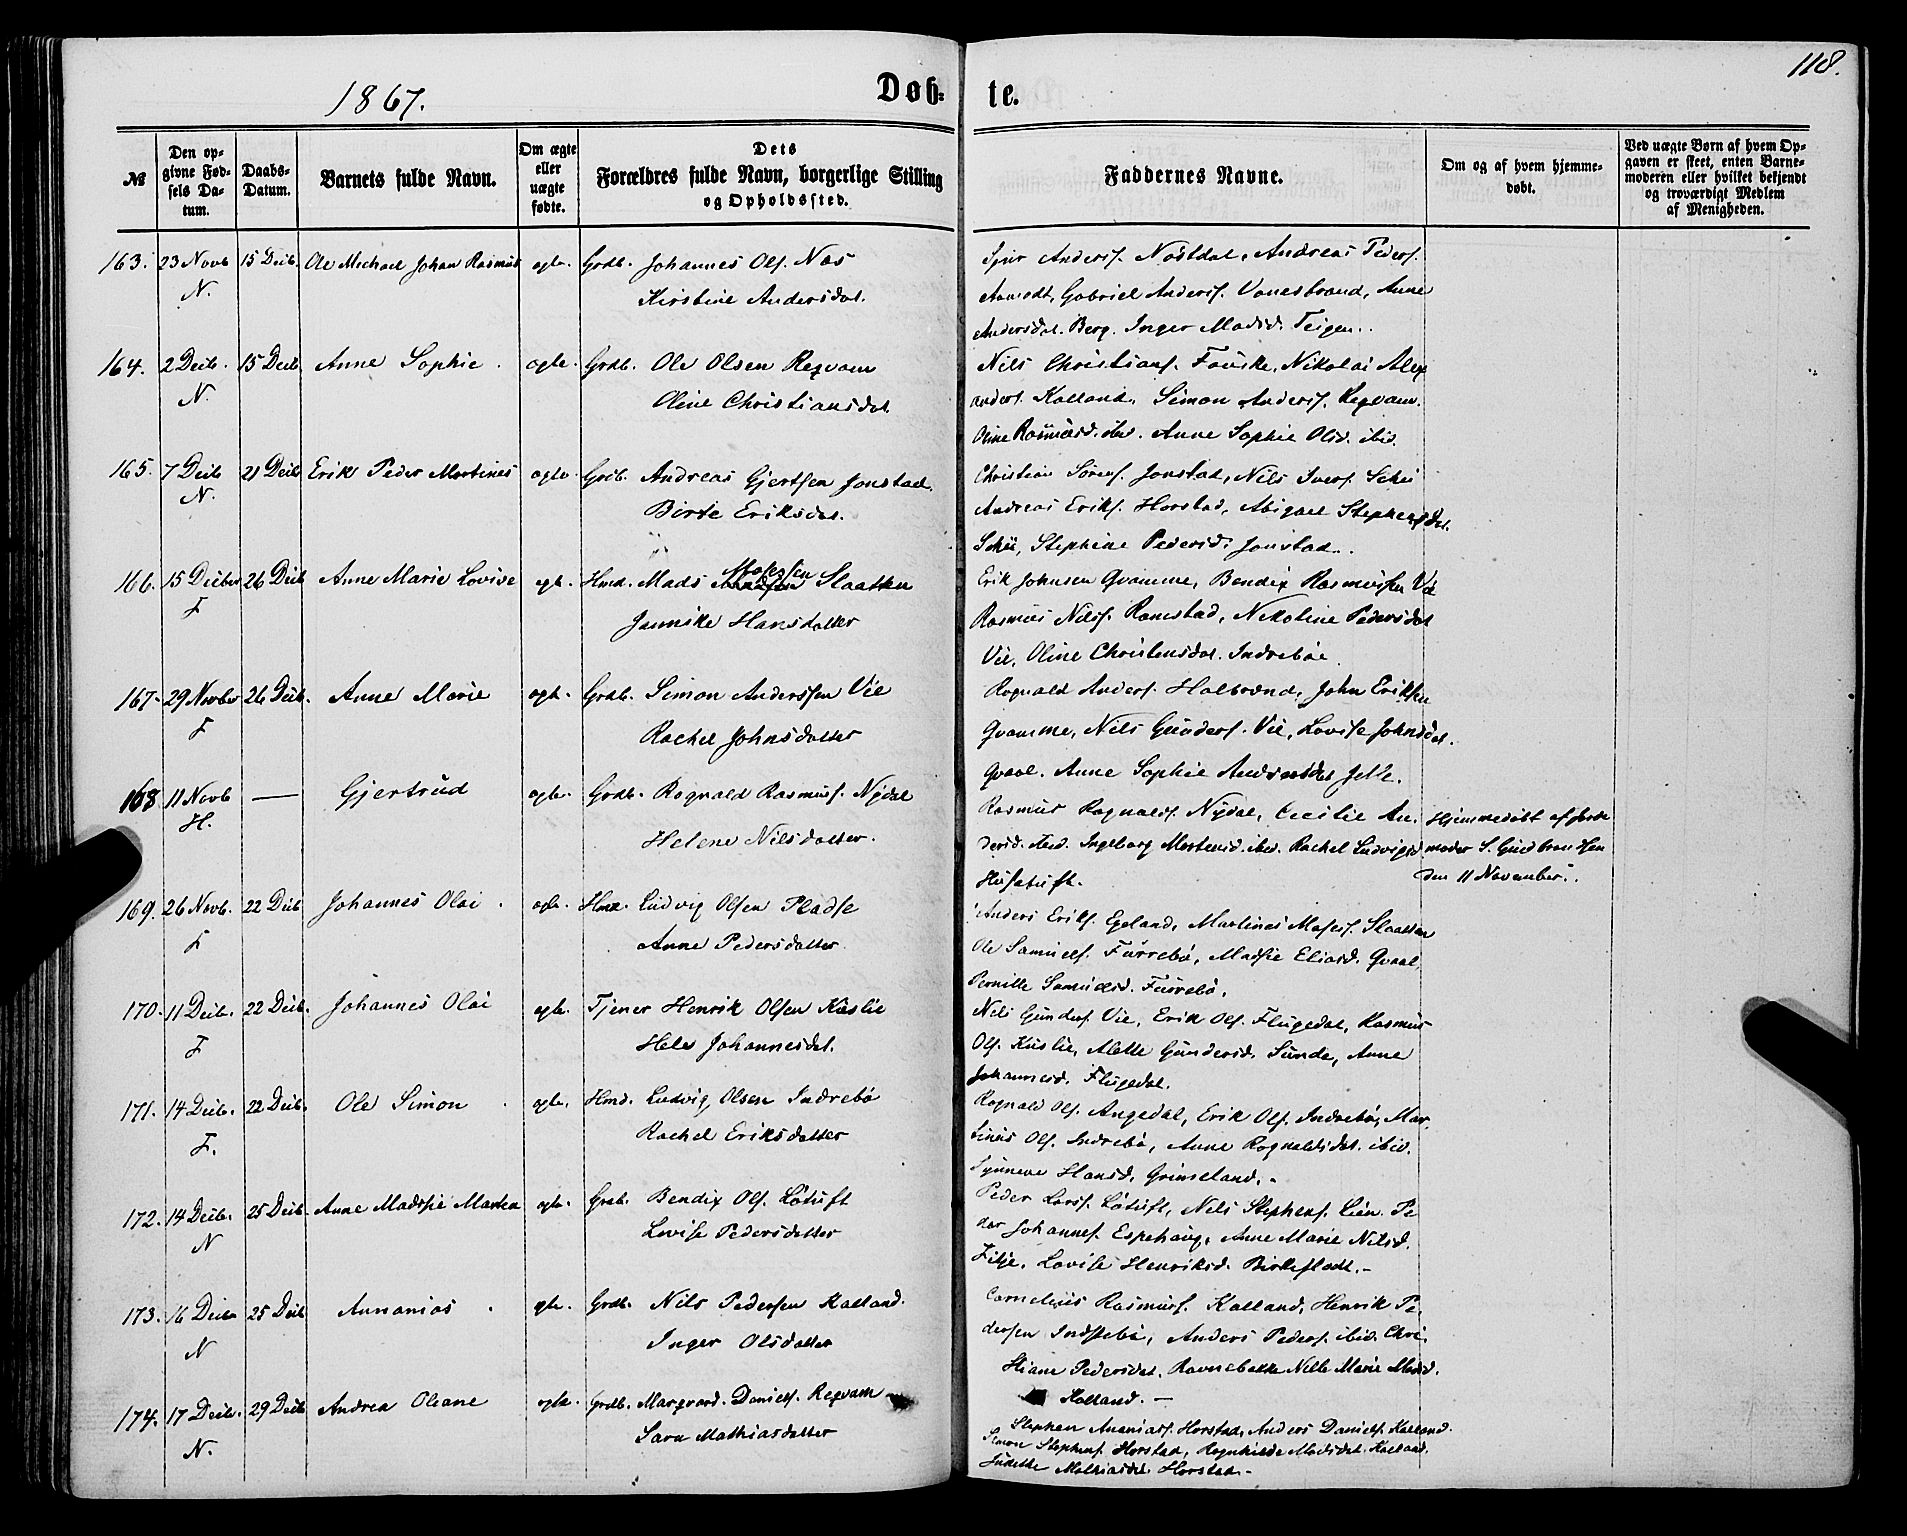 118.
1867.
Døb- te.
№
Den opgivne Fødsels Datum.
Daabs-Datum.
Barnets fulde Navn.
Om ægte eller uægte fødte.
Dets Forældres fulde Navn, borgerlige Stilling og Opholdssted.
Faddernes Navne.
Om og af hvem hjemmedøbt.
Ved uægte Børn af hvem Opgaven er skeet, enten Barnemoderen eller hvilket bekjendt og troværdigt Medlem af Menigheden.
163. 23 Novb N. 15 Decb. Ole Michael Johan Rasmus ægte. Grdb. Johannes Ols. Nos
Kirstine Andersdat.
Anders. Nöstdal, Andreas Peders.
Aamodt, Gabriel Anders. Vonesbrand, Anne
Andersdat. Berg. Inger Madsd. Teigen.
164. 2 Decb. N. 15 Decb Anne Sophie. ægte. Grdb. Ole Olsen Reqvam
Oline Christiansdat.
Nils Christians. Fouske, Nikolai Alex
anders. Kalland, Simon Anders. Reqvam.
Oline Rasmusd. ibid. Anne Sophie Olsd. ibid.
165. 7 Decb N. 21 Decb Erik Peder Martines ægte. Grdb. Andreas Gjertsen Jonstad.
Birte Eriksdat.
Christian Sörens. Jonstad, Nils Ivers. Schei
Andreas Eriks. Horstad, Abigael Stephensdat.
Schei, Stephine Pedersd. Jonstad.
166. 15 Decber F 26 Decb Anne Marie Lovise ægt. Hmd. Mads Mosessen Slaatten
Jannike Hansdatter
Erik Johnsen Qvamme, Bendix Rasmussen Vie
Rasmus Nils. Ramstad, Nikoline Pedersdat
Vie, Oline Christensdat. Indrebøe.
167. 29 Novber F 26 Decb. Anne Marie ægt. Grdb. Simon Anderssen Vie
Rachel Johnsdatter
Rognald Anders. Halbrænd, John Eriksen
Qvamme, Nils Gunders. Vie, Lovise Johnsdat.
Qvaal. Anne Sophie Andersdat Jelle.
168 11 Novb H. — Gjertrud ægte. Grdb. Rognald Rasmuss. Nÿdal
Helene Nilsdatter.
Rasmus Rognalds. Nÿdal, Cecilie An.
dersd. ibid. Ingeborg Mortensd. ibid. Rachel Ludvigsd.
Husetuft.
Hjemmedöbt af Jorde
moder S. Gudbrandsen
den 11 November.
169. 26 Novb. F 22 Decb Johannes Olai. ægte. Hmd. Ludvig Olsen Pladse
Anne Pedersdatter.
Anders Eriks. Egeland, Martines Moses. Slaatten
Ole Samuels. Furrebö, Madsie Eliasd. Qvaal,
Pernille Samuelsd. Furrebö.
170. 11 Decb. F 22 Decb. Johannes Olai ægte. Tjener Henrik Olsen Kuslie
Hele Johannesdat.
Nils Gunders. Vie, Erik Ols. Flugedal, Rasmus
Ols. Kuslie, Alette Gundersd. Sunde, Anne
Johannesd. Flugedal.
171. 14 Decb. F. 22 Decb. Ole Simon ægte. Hmd. Ludvig Olsen Indrebö
Rachel Eriksdatter
Rognald Ols. Angedal, Erik Ols. Indrebö, Mar
tinus Ols. Indrebö, Anne Rognaldsdat. ibid.
Synneve Hansd. Grimeland.
172. 14 Decb. N 25 Decb. Anne Madsie Marthea ægte. Grdb. Bendix Ols. Lötuft
Lovise Pedersdatter
Peder Lars. Lötuft, Nils Stephens. Lien. Pe
der Johannes. Espehaug, Anne Marie Nilsd.
Fitje. Lovise Henriksd. Birkeflodt.
173. 16 Decb N 25 Decb Annanias. ægte. Grdb. Nils Pedersen Kalland.
Inger Olsdatter
Cornelius Rasmuss. Kalland, Henrik Pe
dersen Indstebö, Anders Peders. ibid. Chri
stiane Pedersdat. Ravnebakke Nille Marie Madsd.
Kalland. —
174. 17 Decb. N. 29 Decb Andrea Oleane ægte. Grdb. Marqvard Daniels. Reqvam
Sara Mathiasdatter
Stephen Ananias. Horstad, Anders Daniels. Kalland.
Simon Stephens. Horstad, Rognhilde Madsdat. Kalland.
Mathiasdat. Horstad.